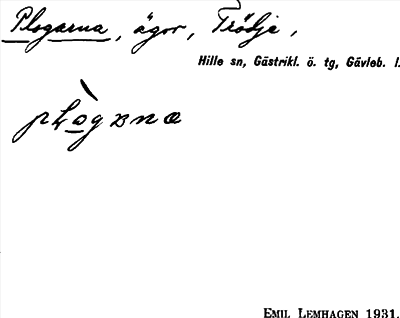 Plogarna, ägor, Trödje,
Hille sn, Gästrikl. ö. tg, Gävleb. l.
EMIL LEMHAGEN 1931.